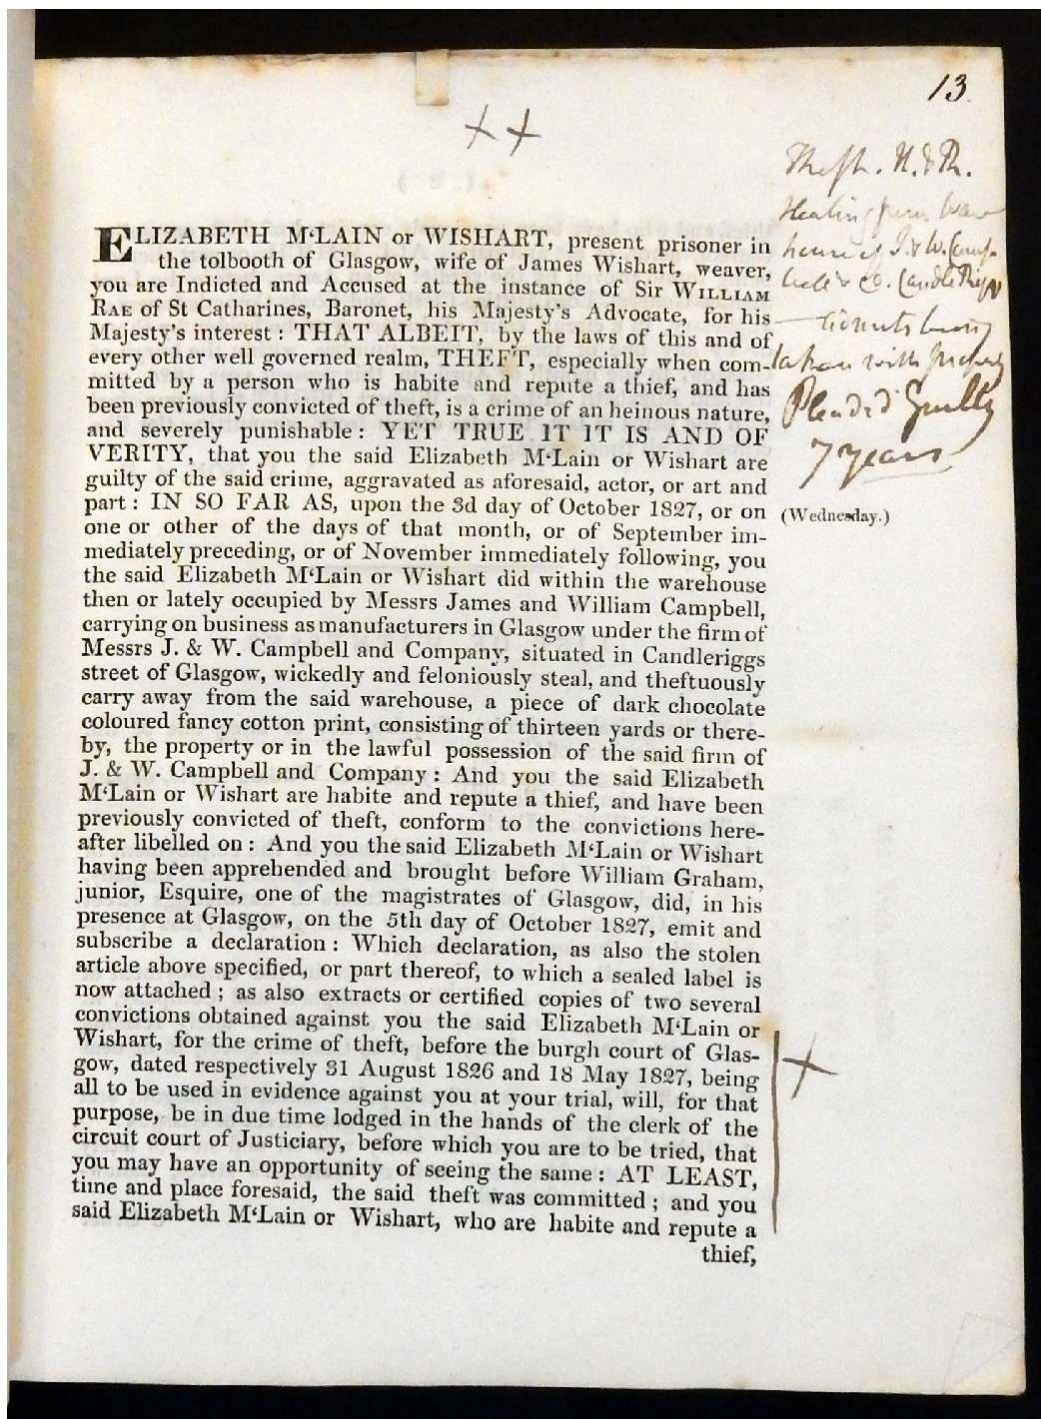 13.
Theft. H. & R.
Stealing from Ware
house of J. & W. Camp-
bell & Co.
taken with property
Pleaded Guilty
7 years
ELIZABETH M'LAIN or WISHART, present prisoner in
the tolbooth of Glasgow, wife of James Wishart, weaver,
you are Indicted and Accused at the instance of Sir WILLIAM
RAE of St Catharines, Baronet, his Majesty's Advocate, for his
Majesty's interest: THAT ALBEIT, by the laws of this and of
every other well governed realm, THEFT, especially when com-
mitted by a person who is habite and repute a thief, and has
been previously convicted of theft, is a crime of an heinous nature,
and severely punishable: YET TRUE IT IT IS AND OF
VERITY, that you the said Elizabeth M'Lain or Wishart are
guilty of the said crime, aggravated as aforesaid, actor, or art and
part: IN SO FAR AS, upon the 3d day of October 1827, or on
(Wednesday.)
one or other of the days of that month, or of September im-
mediately preceding, or of November immediately following, you
the said Elizabeth M'Lain or Wishart did within the warehouse
then or lately occupied by Messrs James and William Campbell,
carrying on business as manufacturers in Glasgow under the firm of
Messrs J. & W. Campbell and Company, situated in Candleriggs
street of Glasgow, wickedly and feloniously steal, and theftuously
carry away from the said warehouse, a piece of dark chocolate
coloured fancy cotton print, consisting of thirteen yards or there-
by, the property or in the lawful possession of the said firm of
J. & W. Campbell and Company: And you the said Elizabeth
M'Lain or Wishart are habite and repute a thief, and have been
previously convicted of theft, conform to the convictions here-
after libelled on: And you the said Elizabeth M'Lain or Wishart
having been apprehended and brought before William Graham,
junior, Esquire, one of the magistrates of Glasgow, did, in his
presence at Glasgow, on the 5th day of October 1827, emit and
subscribe a declaration: Which declaration, as also the stolen
article above specified, or part thereof, to which a sealed label is
now attached; as also extracts or certified copies of two several
convictions obtained against you the said Elizabeth M'Lain or
Wishart, for the crime of theft, before the burgh court of Glas-
gow, dated respectively 31 August 1826 and 18 May 1827, being
all to be used in evidence against you at your trial, will, for that
purpose, be in due time lodged in the hands of the clerk of the
circuit court of Justiciary, before which you are to be tried, that
you may have an opportunity of seeing the same: AT LEAST,
time and place foresaid, the said theft was committed; and you
said Elizabeth M'Lain or Wishart, who are habite and repute a
thief,